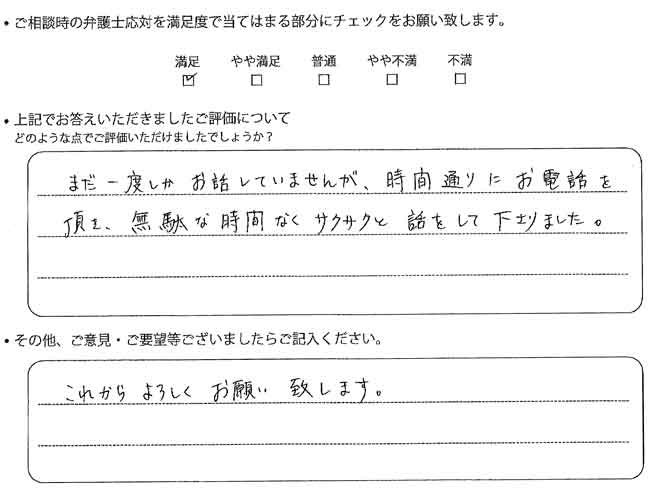 ・ご相談時の弁護士応対を満足度で当てはまる部分にチェックをお願い致します。
満足 やや満足 普通 やや不満 不満
☑ ☐ ☐ ☐ ☐
・上記でお答えいただきましたご評価について
どのような点でご評価いただけましたでしょうか？
まだ一度しか お話していませんが、時間通りに お電話を
頂き、無駄な時間なく サクサクと 話をして 下さりました。
・その他、ご意見・ご要望等ございましたらご記入ください。
これから よろしく お願い 致します。